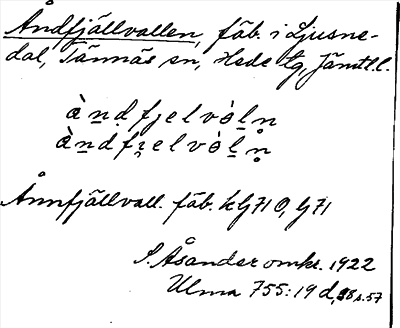 Åndfjällvallen, fäb. i Ljusne-
dal, Tännäs sn, Hede tg, Jämtl.l.
àn̲dfjelvòl̲n
àn̲dfi̯elvòl̲n̥
Ånnfjällvall. fäb. kG71 O, G71
S. Åsander omkr. 1922
Ulma 755:19 d, s.57